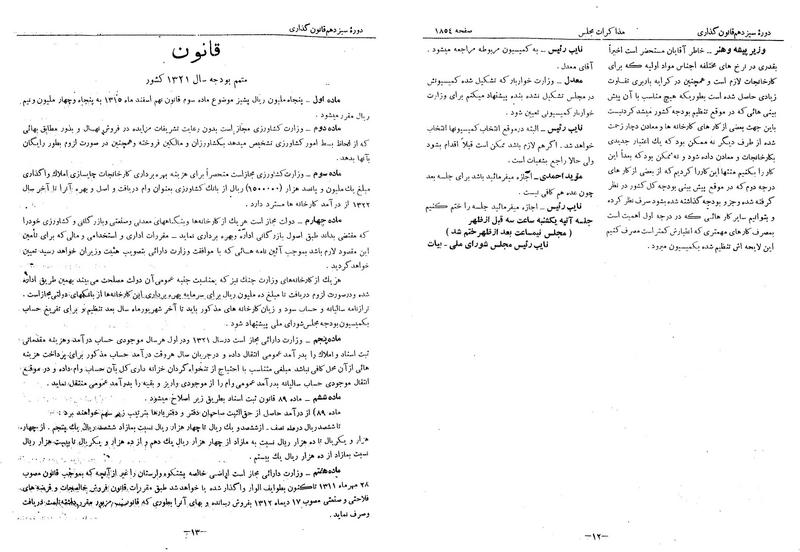 دورهٔ سیزدهم قانون گذاری
مذاکرات مجلس
صفحه ۱۸۵۴
وزیر پیشه و هنر ـ خاطر آقایان مستحضر است اخیراً
بقدری در نرخ های مختلفه اجناس مواد اولیه که برای
کارخانجات لازم است و همچنین در کرایه باربری تفاوت
زیادی حاصل شده است بطوریکه هیچ متناسب با آن پیش
بینی هائی که در موقع تنظیم بودجه کشور میشد کرد نیست
باین جهت بعضی از کار های کارخانه ها و معادن دچار زحمت
شده از طرف دیگر نه ممکن بود که یك اعتبار جدیدی
بکارخانجات و معادن داده شود و نه ممکن بود که بعداً این
کار را بکنیم منتها این کار را کردیم که از بعضی از کار های
درجه دوم که در موقع پیش بینی بودجه کل کشور در نظر
گرفته شده و جزو بودجه گذاشته شده بشود صرف نظر کرده
و بتوانیم سایر کار هائی که در درجه اول اهمیت است
بمصرف کار های مهمتری که اعتبارش کمتر است مصرف کنیم
این لایحه اش تنظیم شده بکمیسیون میرود.
نایب رئیس ـ به کمیسیون مربوطه مراجعه میشود.
آقای معدل.
معدل ـ وزارت خواربار که تشکیل شده کمیسیونش
در مجلس تشکیل نشده بنده پیشنهاد میکنم برای وزارت
خواربار کمیسیونی تعیین شود.
نایب رئیس ـ البته در موقع انتخاب کمیسیونها انتخاب
خواهد شد. اگر هم لازم باشد ممکن است قبلاً اقدام بشود
ولی حالا راجع بشعبات است.
مؤید احمدی ـ اجازه میفرمائید باشد برای جلسه بعد
چون عده هم کافی نیست.
نایب رئیس ـ اجازه میفرمائید جلسه را ختم کنیم
جلسه آتیه یکشنبه ساعت سه قبل از ظهر
(مجلس نیمساعت بعد از ظهر ختم شد)
نایب رئیس مجلس شورای ملی ـ بیات
ـ۱۲ـ
دورهٔ سیزدهم قانون گذاری
قانون
متمم بودجه سال ۱۳۲۱ کشور
ماده اول ـ پنجاه ملیون ریال پشیز موضوع ماده سوم قانون نهم اسفند ماه ۱۳۱۵ به پنجاه و چهار ملیون و نیم
ریال مقرر میشود.
ماده دوم ـ وزارت کشاورزی مجاز است بدون رعایت تشریفات مزایده در فروش نهال و بذور مطابق بهائی
که از لحاظ بسط امور کشاورزی تشخیص میدهد ببرزگران و مالکین فروخته و همچنین در صورت لزوم بطور رایگان
بآنها بدهد.
ماده سوم ـ وزارت کشاورزی مجاز است منحصراً برای هزینه بهره برداری کارخانجات چایسازی املاك واگذاری
مبلغ یك ملیون و پانصد هزار (۱۵۰۰۰۰۰) ریال از بانك کشاورزی بعنوان وام دریافت و اصل و بهره آنرا تا آخر سال
۱۳۲۲ از درآمد کارخانه ها مسترد دارد.
ماده چهارم ـ دولت مجاز است هر یك از کارخانه‌ها و بنگاههای معدنی و صنعتی و بازرگانی و کشاورزی خود را
که مقتضی بداند طبق اصول بازرگانی اداره و بهره برداری نماید ـ مقررات اداری و استخدامی و مالی که برای تأمین
این مقصود لازم باشد بموجب آئین نامه هائی که با موافقت وزارت دارائی بتصویب هیئت وزیران خواهد رسید تعیین
خواهد گردید.
هر یك از کارخانه‌های وزارت جنك نیز که بمناسبت جنبه عمومی آن دولت مصلحت می‌بیند بهمین طریق اداره
شده و در صورت لزوم دریافت تا مبلغ ده ملیون ریال برای سرمایه بهره برداری این کارخانه‌ها از بانکهای دولتی مجاز است.
ترازنامه سالیانه و حساب سود و زیان کارخانه های مذکور باید تا آخر شهریور ماه سال بعد تنظیم و برای تفریغ حساب
بکمیسیون بودجه مجلس شورای ملی پیشنهاد شود.
ماده پنجم ـ وزارت دارائی مجاز است در سال ۱۳۲۱ و در اول هر سال موجودی حساب درآمد و هزینه مقدماتی
ثبت اسناد و املاك را بدرآمد عمومی انتقال داده و در جریان سال هر وقت درآمد حساب مذکور برای پرداخت هزینه
هائی از آن محل کافی نباشد مبلغی متناسب با احتیاج از تنخواه گردان خزانه داری کل بآن حساب وام داده و در موقع
انتقال موجودی حساب سالیانه بدرآمد عمومی وام را از موجودی واریز و بقیه را بدرآمد عمومی منتقل نماید.
ماده ششم ـ ماده ۸۹ قانون ثبت اسناد بطریق زیر اصلاح میشود.
ماده ۸۹) از درآمد حاصل از حق‌الثبت صاحبان دفتر و دفتریارها بترتیب زیر سهم خواهند برد:
تا ششصد ریال در ماه نصف ـ از ششصد و یك ریال تا چهار هزار ریال نسبت بمازاد ششصد ریال یك پنجم. از چهار
هزار و یکریال تا ده هزار ریال نسبت به مازاد از چهار هزار ریال یك دهم و از ده هزار و یکریال تا بیست هزار ریال
نسبت بمازاد از ده هزار ریال یك بیستم.
ماده هفتم ـ وزارت دارائی مجاز است اراضی خالصه پشتکوه و لرستان را غیر از آنچه که بموجب قانون مصوب
۲۸ مهر ماه ۱۳۱۱ تاکنون بطوایف الوار واگذار شده یا خواهد شد طبق مقررات قانون فروش خالصجات و قرضه های
فلاحتی و صنعتی مصوب ۱۷ دیماه ۱۳۱۲ بفروش رسانده و بهای آنرا بطوری که قانون مزبور مقرر داشته است دریافت
و صرف نماید.
ـ۱۳ـ